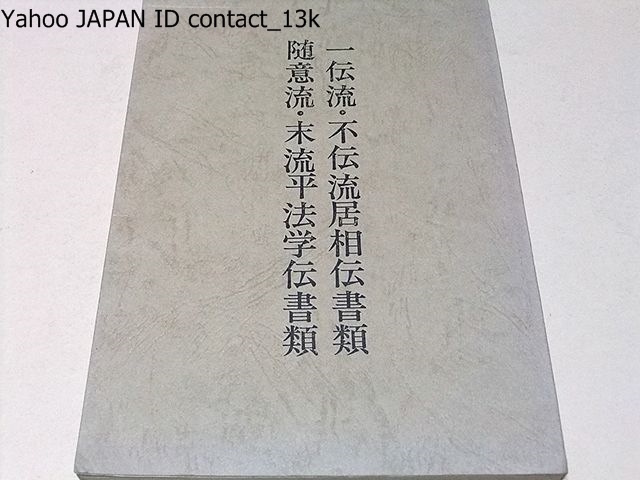 Yahoo JAPAN ID contact_13k
一伝流・不伝流居相伝書類
随意流・末流平法学伝書類